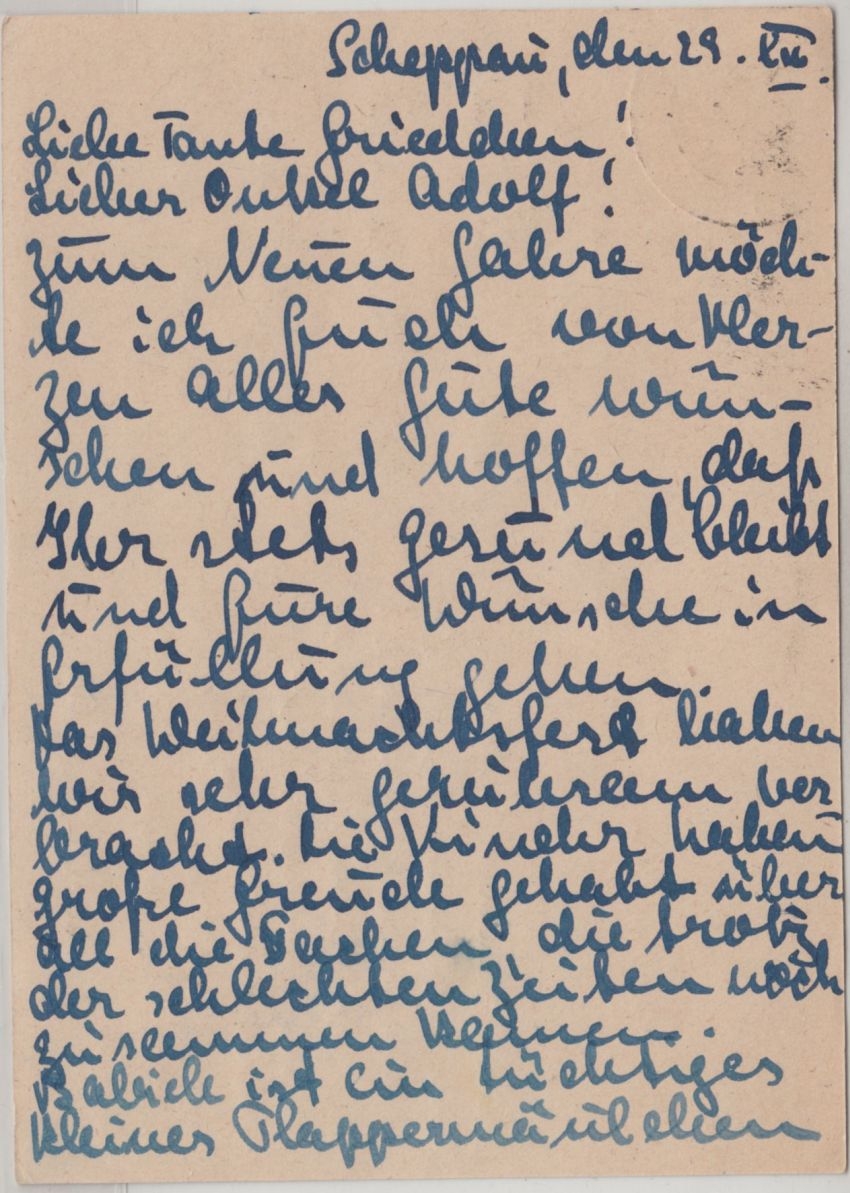 Scheppau, den 29. XII.
Liebe Tante Friedchen!
Lieber Onkel Adolf!
Zum Neuen Jahre möch-
te ich Euch von Her-
zen alles Gute wün-
schen und hoffen, daß
Ihr stets gesund bleibt
und Eure Wünsche in
Erfüllung gehen.
Das Weihnachtsfest haben
wir sehr geruhsam ver
bracht. Die Kinder haben
große Freude gehabt über
all die Sachen, die trotz
der schlechten Zeiten noch
zusammen kamen.
ist ein tüchtiges
kleines Plappermäulchen